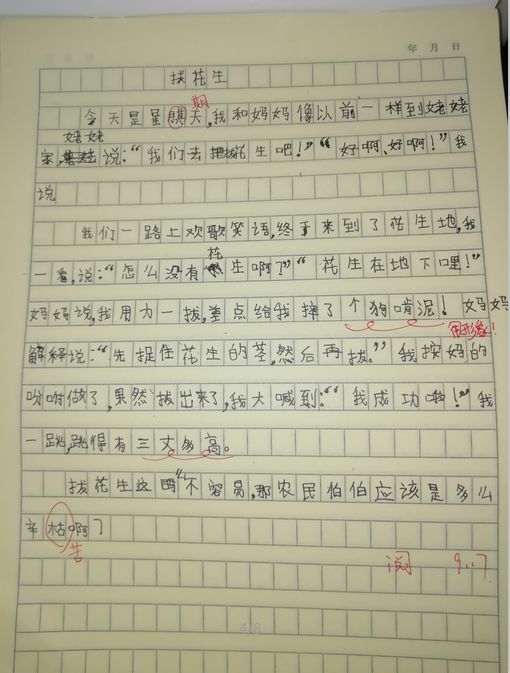 年 月 日
拔花生
期
今天是星期天,我和妈妈像以前一样到姥姥
姥姥
家,说:“我们去拔花生吧!”“好啊、好啊!”我
说
我们一路上欢歌笑语,终于来到了花生地,我
花
一看,说:“怎么没有生啊?”“花生在地下哩!”
妈妈说,我用力一拔,差点给我摔了个狗啃泥!妈妈
用形象!
解释说:“先捉住花生的茎,然后再拔。”我按妈的
吩咐做了,果然拔出来了,我大喊到:“我成功啦!”我
一跳,跳得有三丈多高。
拔花生这么不容易,那农民伯伯应该是多么
辛枯啊?
苦
阅 9.17
418